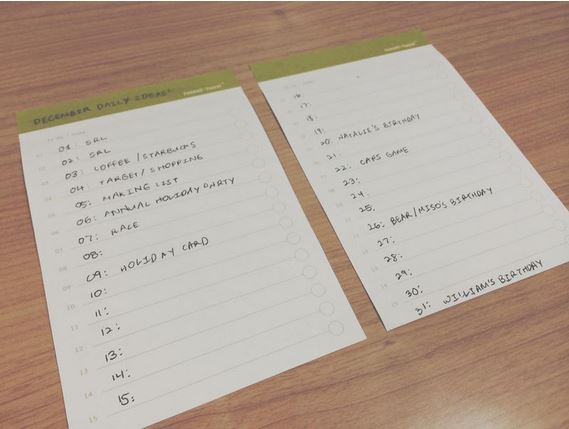 DECEMBER DAILY IDEAS:
01: SRL
02: SRL
03: COFFEE / STARBUCKS
04: TARGET / SHOPPING
05: MAKING LIST
06: ANNUAL HOLIDAY PARTY
07: RACE
08:
09: HOLIDAY CARD
10:
11:
12:
13:
14:
15:
16.
17:
18:
19:
20: NATALIE'S BIRTHDAY
21:
22: CAPS GAME
23:
24:
25.
26: BEAR/MISO'S BIRTHDAY
27:
28:
29:
30:
31: WILLIAM'S BIRTHDAY